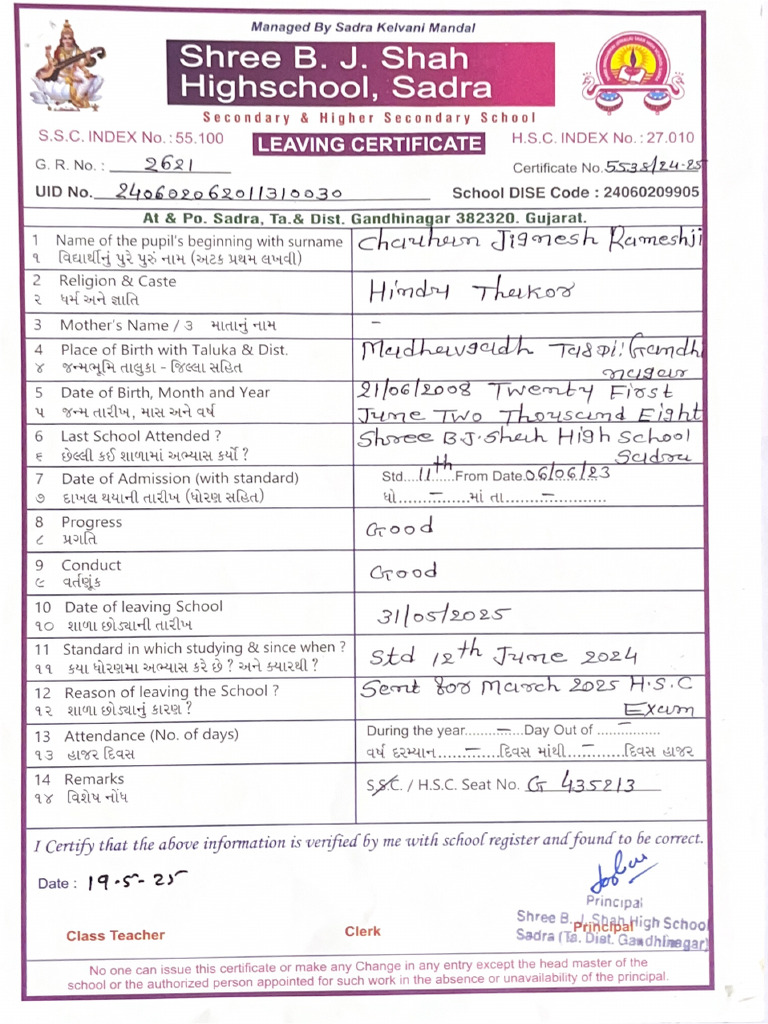 Managed By Sadra Kelvani Mandal
Shree B. J. Shah
Highschool, Sadra
Secondary & Higher Secondary School
S.S.C. INDEX No. : 55.100
LEAVING CERTIFICATE
H.S.C. INDEX No. : 27.010
G. R. No. : 2621
Certificate No. 5538/24-25
UID No. 240602062011310030
School DISE Code : 24060209905
At & Po. Sadra, Ta.& Dist. Gandhinagar 382320. Gujarat.
1 Name of the pupil's beginning with surname
૧ વિદ્યાર્થીનું પુરે પુરું નામ (અટક પ્રથમ લખવી)
Chauhan Jignesh Rameshji
2 Religion & Caste
૨ ધર્મ અને જ્ઞાતિ
Hindu Thakor
3 Mother's Name / ૩ માતાનું નામ
-
4 Place of Birth with Taluka & Dist.
૪ જન્મભૂમિ તાલુકા - જિલ્લા સહિત
Madhavgadh Ta&Di: Gandhi
nagar
5 Date of Birth, Month and Year
૫ જન્મ તારીખ, માસ અને વર્ષ
21/06/2008 Twenty First
June Two Thousand Eight
6 Last School Attended ?
૬ છેલ્લી કઈ શાળામાં અભ્યાસ કર્યો ?
Shree B.J. Shah High School
Sadra
7 Date of Admission (with standard)
૭ દાખલ થયાની તારીખ (ધોરણ સહિત)
Std....11th......From Date.06/06/23
ધો.......-.......માં તા.......-............
8 Progress
૮ પ્રગતિ
Good
9 Conduct
૯ વર્તણૂંક
Good
10 Date of leaving School
૧૦ શાળા છોડ્યાની તારીખ
31/05/2025
11 Standard in which studying & since when ?
૧૧ કયા ધોરણમા અભ્યાસ કરે છે ? અને ક્યારથી ?
Std 12th June 2024
12 Reason of leaving the School ?
૧૨ શાળા છોડ્યાનું કારણ ?
Sent for March 2025 H.S.C
Exam
13 Attendance (No. of days)
૧૩ હાજર દિવસ
During the year.......-....Day Out of ......-......
વર્ષ દરમ્યાન......-.....દિવસ માંથી...-.......દિવસ હાજર
14 Remarks
૧૪ વિશેષ નોંધ
S.S.C. / H.S.C. Seat No. G 435213
I Certify that the above information is verified by me with school register and found to be correct.
Date : 19-5-25
Principal
Shree B. J. Shah High School
Sadra (Ta. Dist. Gandhinagar)
Class Teacher
Clerk
Principal
No one can issue this certificate or make any Change in any entry except the head master of the
school or the authorized person appointed for such work in the absence or unavailability of the principal.